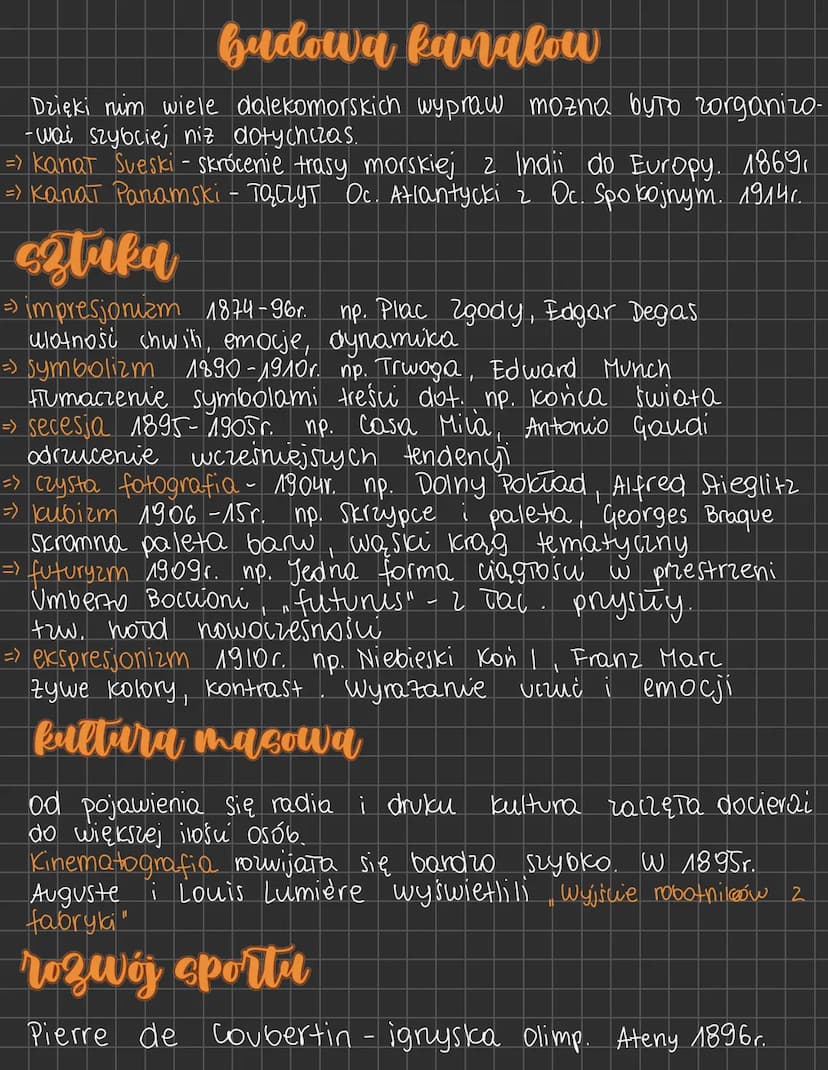 budowa kanałow
Dzięki nim wiele dalekomorskich wypraw można było zorganizo-
-wać szybciej niż dotychczas.
=> Kanał Sueski - skrócenie trasy morskiej z Indii do Europy. 1869r
=> Kanał Panamski - łączył Oc. Atlantycki z Oc. Spokojnym. 1914r.
sztuka
=> impresjonizm 1874-96r. np. Plac Zgody, Edgar Degas
ulotność chwili, emocje, dynamika
=> symbolizm 1890-1910r. np. Trwoga, Edward Munch
tłumaczenie symbolami treści dot. np. końca świata
=> secesja 1895-1905r. np. Casa Milà, Antonio Gaudi
odrzucenie wcześniejszych tendencji
=> czysta fotografia - 1904r. np. Dolny Pokład, Alfred Stieglitz
=> kubizm 1906-15r. np. Skrzypce i paleta, Georges Braque
skromna paleta barw, wąski krąg tematyczny
=> futuryzm 1909r. np. Jedna forma ciągłości w przestrzeni
Umberto Boccioni, „futurus" - z łac. przyszły.
tzw. hołd nowoczesności
=> ekspresjonizm 1910r. np. Niebieski Koń I, Franz Marc
żywe kolory, kontrast. Wyrażanie uczuć i emocji
kultura masowa
od pojawienia się radia i druku kultura zaczęła docierać
do większej ilości osób.
Kinematografia rozwijała się bardzo szybko. W 1895r.
Auguste i Louis Lumière wyświetlili „Wyjście robotników z
fabryki"
rozwój sportu
Pierre de Coubertin - igrzyska olimp. Ateny 1896r.